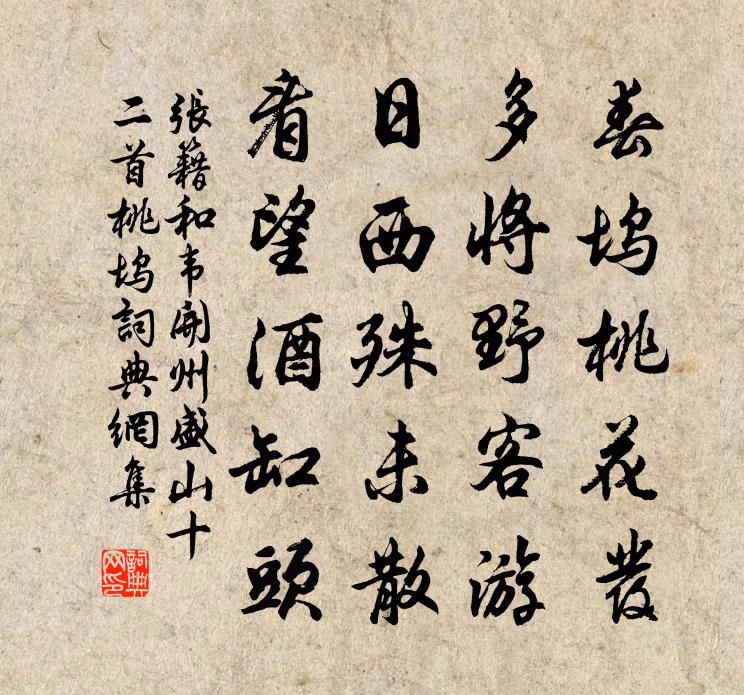 春坞桃花發
多将野客游
日西殊未散
看望酒缸頭
張籍和韦開州盛山十
二首桃坞詞典網集
詞典
网印